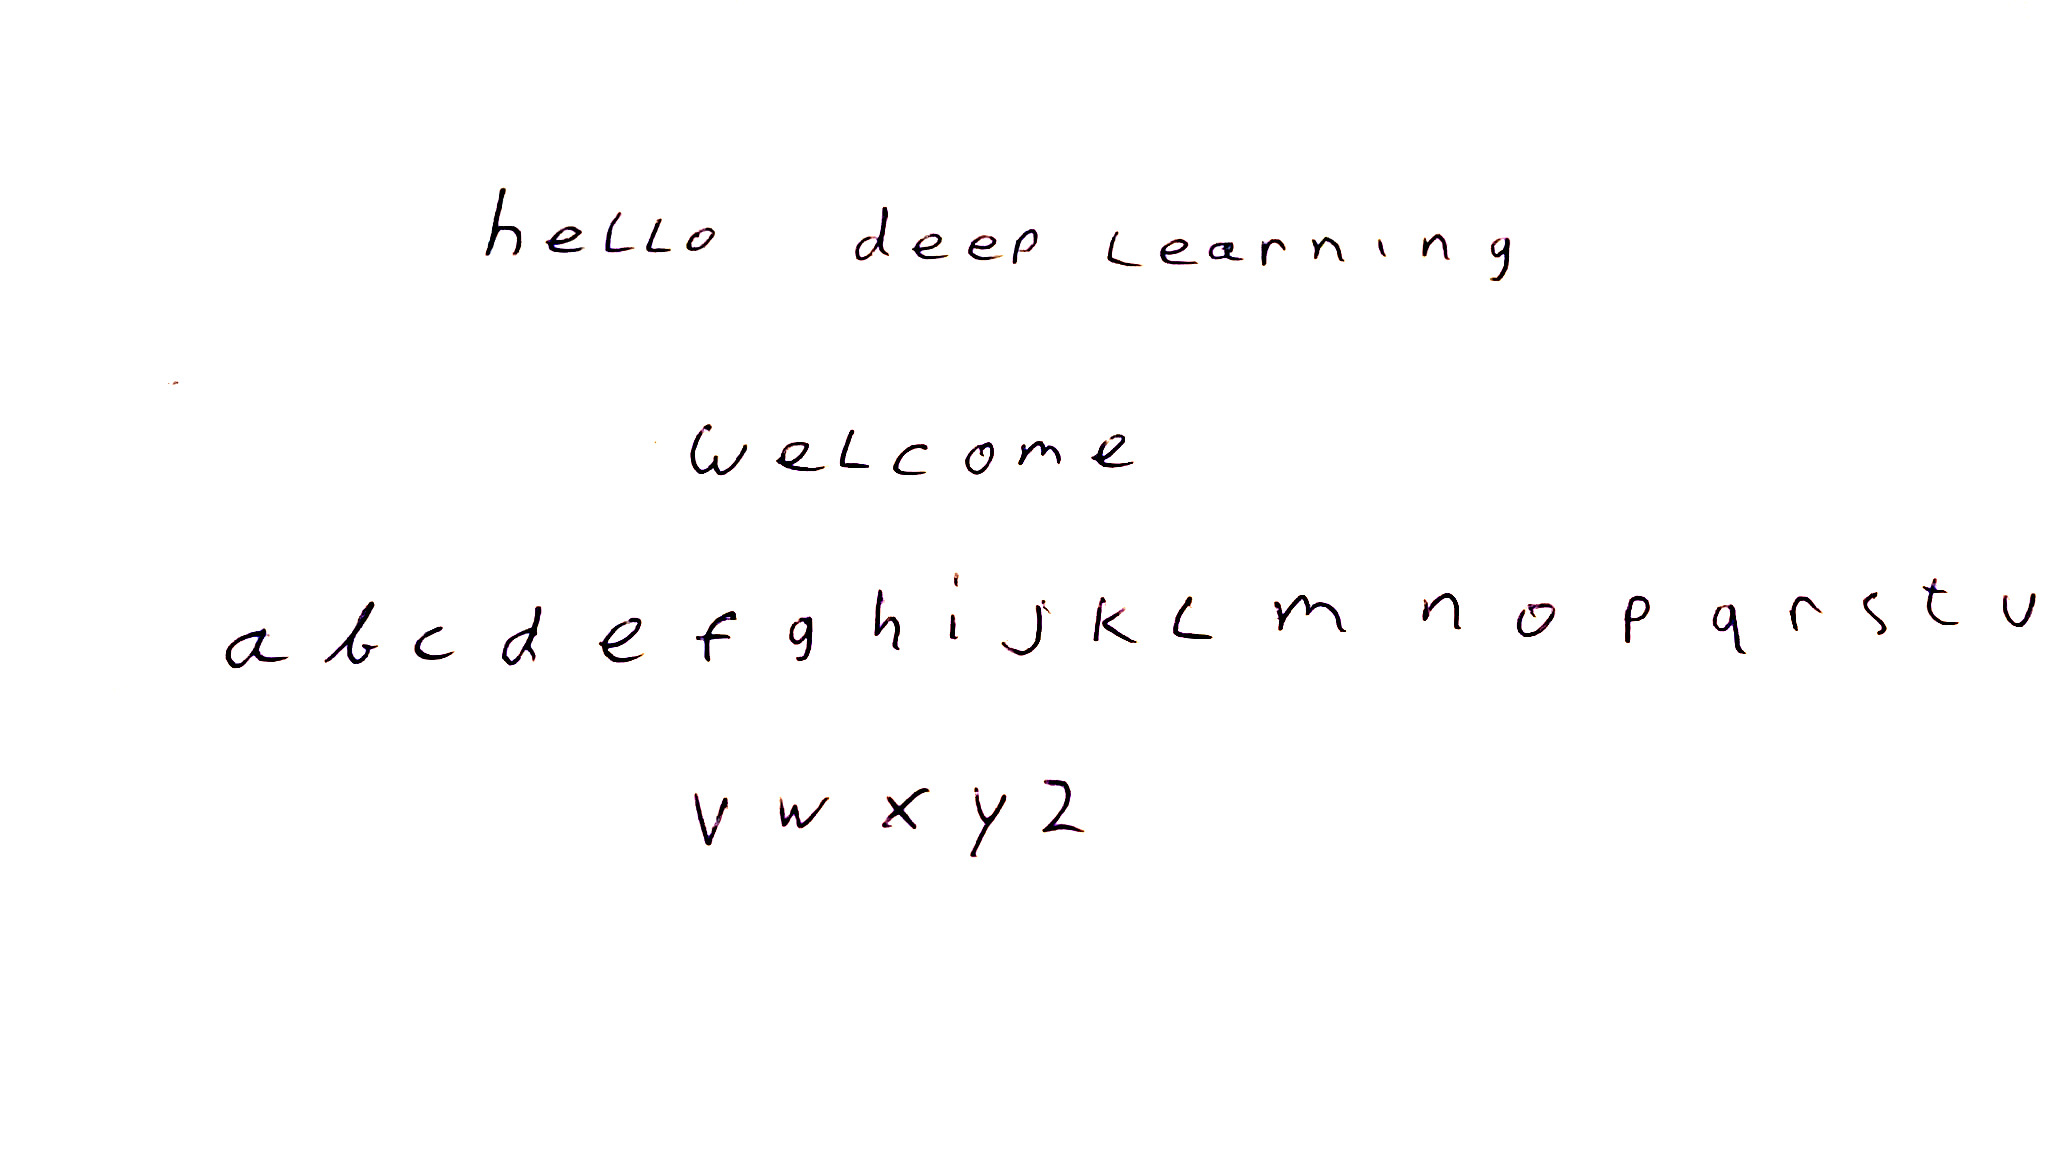 heLLo deep Learning
weLcome
a b c d e f g h i j k L m n o p q r s t u
v w x y z